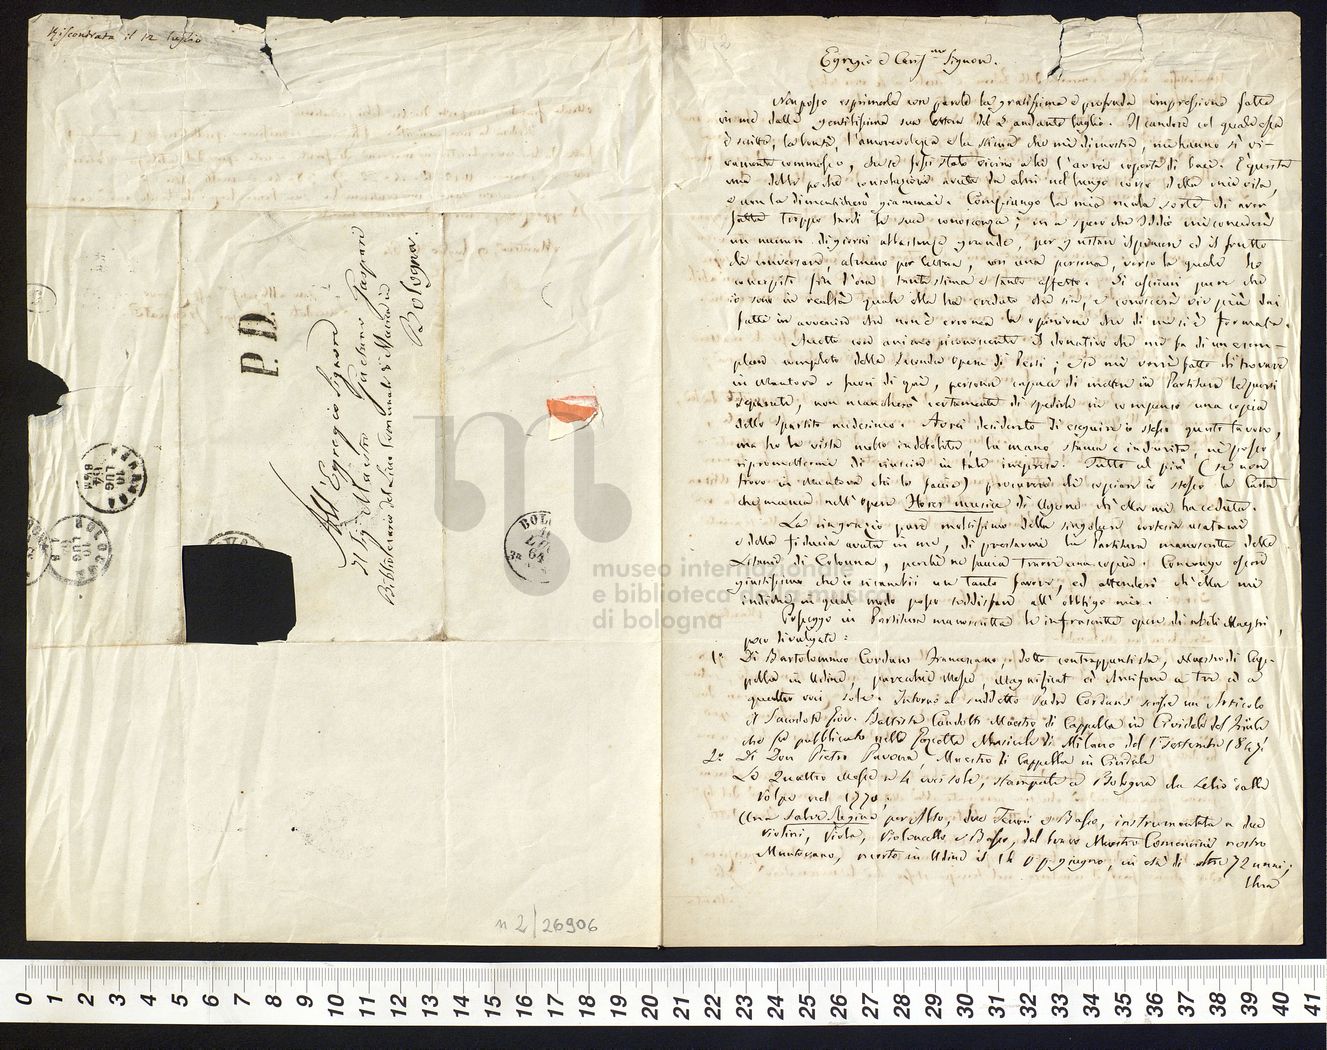 Riscontrata il 12 luglio
P. D.
All' Egregio Signore
Il Sig. Maestro Gaetano Gaspari
Bibliotecario del Liceo Comunale di Musica in
Bologna.
BOLOGNA
10
LUG
64
n 2/26906
Egregio e Cariss.mo Signore.
Non posso esprimerle con parole la gratissima e profonda impressione fatta
in me dalla gentilissima sua lettera del 2 andante luglio. Il candore col quale essa
è scritta, la bontà, l'amorevolezza e la stima che mi dimostra, mi hanno sì vi-
vamente commosso, che se fossi stato vicino a lei l'avrei coperta di baci. È questa
una delle poche consolazioni avute da altri nel lungo corso della mia vita,
e non la dimenticherò giammai. Compiango la mia mala sorte di aver
fatta troppo tardi la sua conoscenza; ma spero che Iddio mi concederà
un numero di giorni abbastanza grande, per gustare il piacere ed il frutto
di conversare, almeno per lettera, con una persona, verso la quale ho
concepito fin d'ora tanta stima e tanto affetto. Di assicuri pure che
io sono in realtà quale ella ha creduto che sia, e conoscerà vie più dai
fatti in avvenire che non è erronea la opinione che di me si è formata.
Accetto con animo riconoscente il donativo che mi fa di un esem-
plare completo della seconda Opera di Pesci; e se mi verrà fatto di trovare
in Mantova o fuori di qui, persona capace di mettere in Partitura le parti
separate, non mancherò certamente di spedirle in compenso una copia
dello spartito medesimo. Avrei desiderato di eseguire io stesso questo lavoro,
ma ho la vista molto indebolita, la mano stanca e indurita, nè posso
ripromettermi di riuscire in tale impresa. Tutto al più (se non
trovo in Mantova chi lo faccia) procurerò di copiare io stesso la Carta
che manca nell'Opera Flores musice di Ugone ch'ella mi ha ceduta.
La ringrazio pure moltissimo della singolare cortesia usatami
e della fiducia avuta in me, di prestarmi la Partitura manoscritta delle
Litanie di Colonna, perchè ne faccia trarre una copia. Convengo essere
giustissimo che io ricambii un tanto favore, ed attenderò ch'ella mi
indichi in qual modo posso soddisfare all'obbligo mio.
Posseggo in Partitura manoscritta le infrascritte opere di nobili Maestri,
poco divulgate:
1.° Di Bartolommeo Cordans Francescano, dotto contrappuntista, Maestro di Cap-
pella in Udine, parecchie Messe, Magnificat ed Antifone a tre ed a
quattro voci sole. Intorno al suddetto Padre Cordans scrisse un Articolo
il Sacerdote Giov. Battista Candotti Maestro di Cappella in Cividale del Friuli
che fu pubblicato nella Gazzetta Musicale di Milano del 1.° settembre 1847.
2.° Di Don Pietro Pavona, Maestro di Cappella in Cividale
Le Quattro Messe a 4 voci sole, stampate a Bologna da Lelio dalla
Volpe nel 1770;
Una Salve Regina per Alto, due Tenori e Basso, instrumentata a due
violini, Viola, Violoncello e Basso, dal bravo Maestro Comencini nostro
Mantovano, morto in Udine il 14 p.p. giugno, in età di oltre 72 anni;
Una